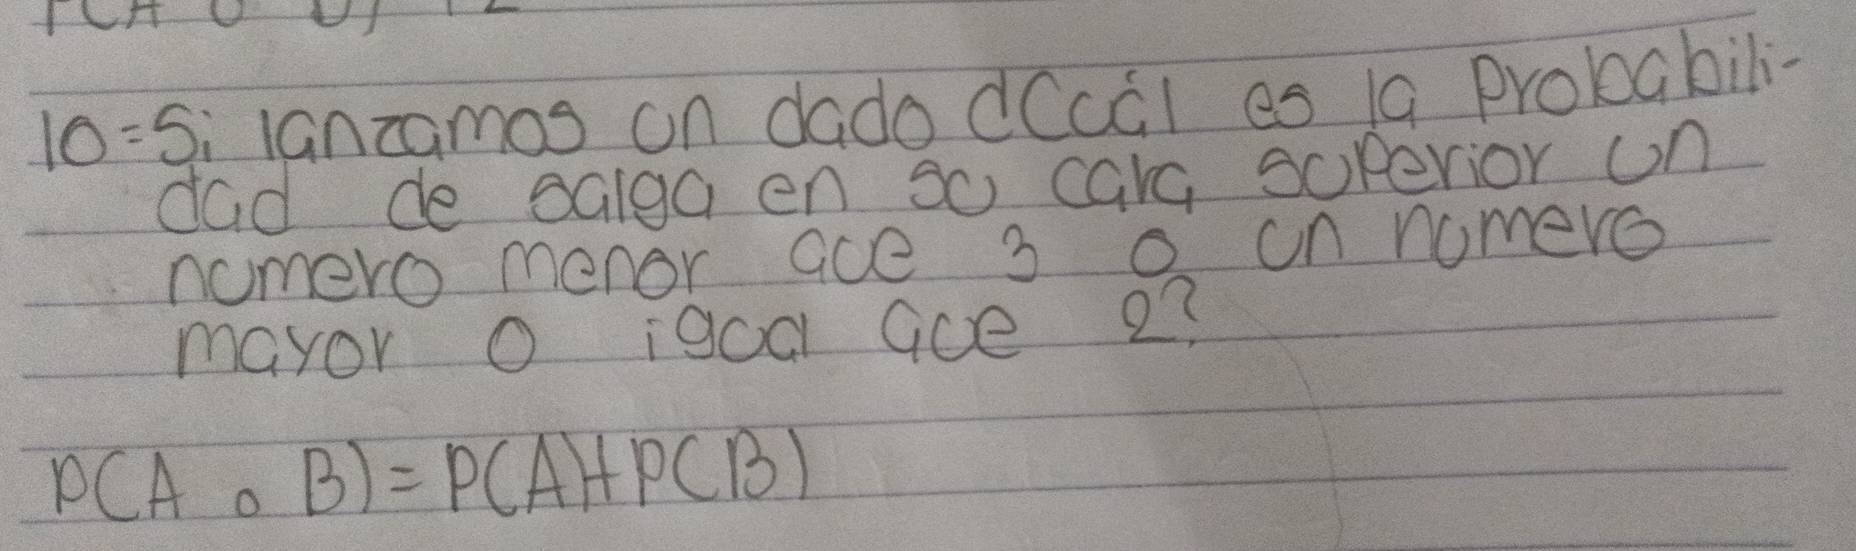 10=Si lanzamos un dado d(cuál es la probabili-
dad de salga en su cara superior un
numero menor que 3 o un numero
mayor o igual que 2?
P(A o B)=P(A)+P(B)